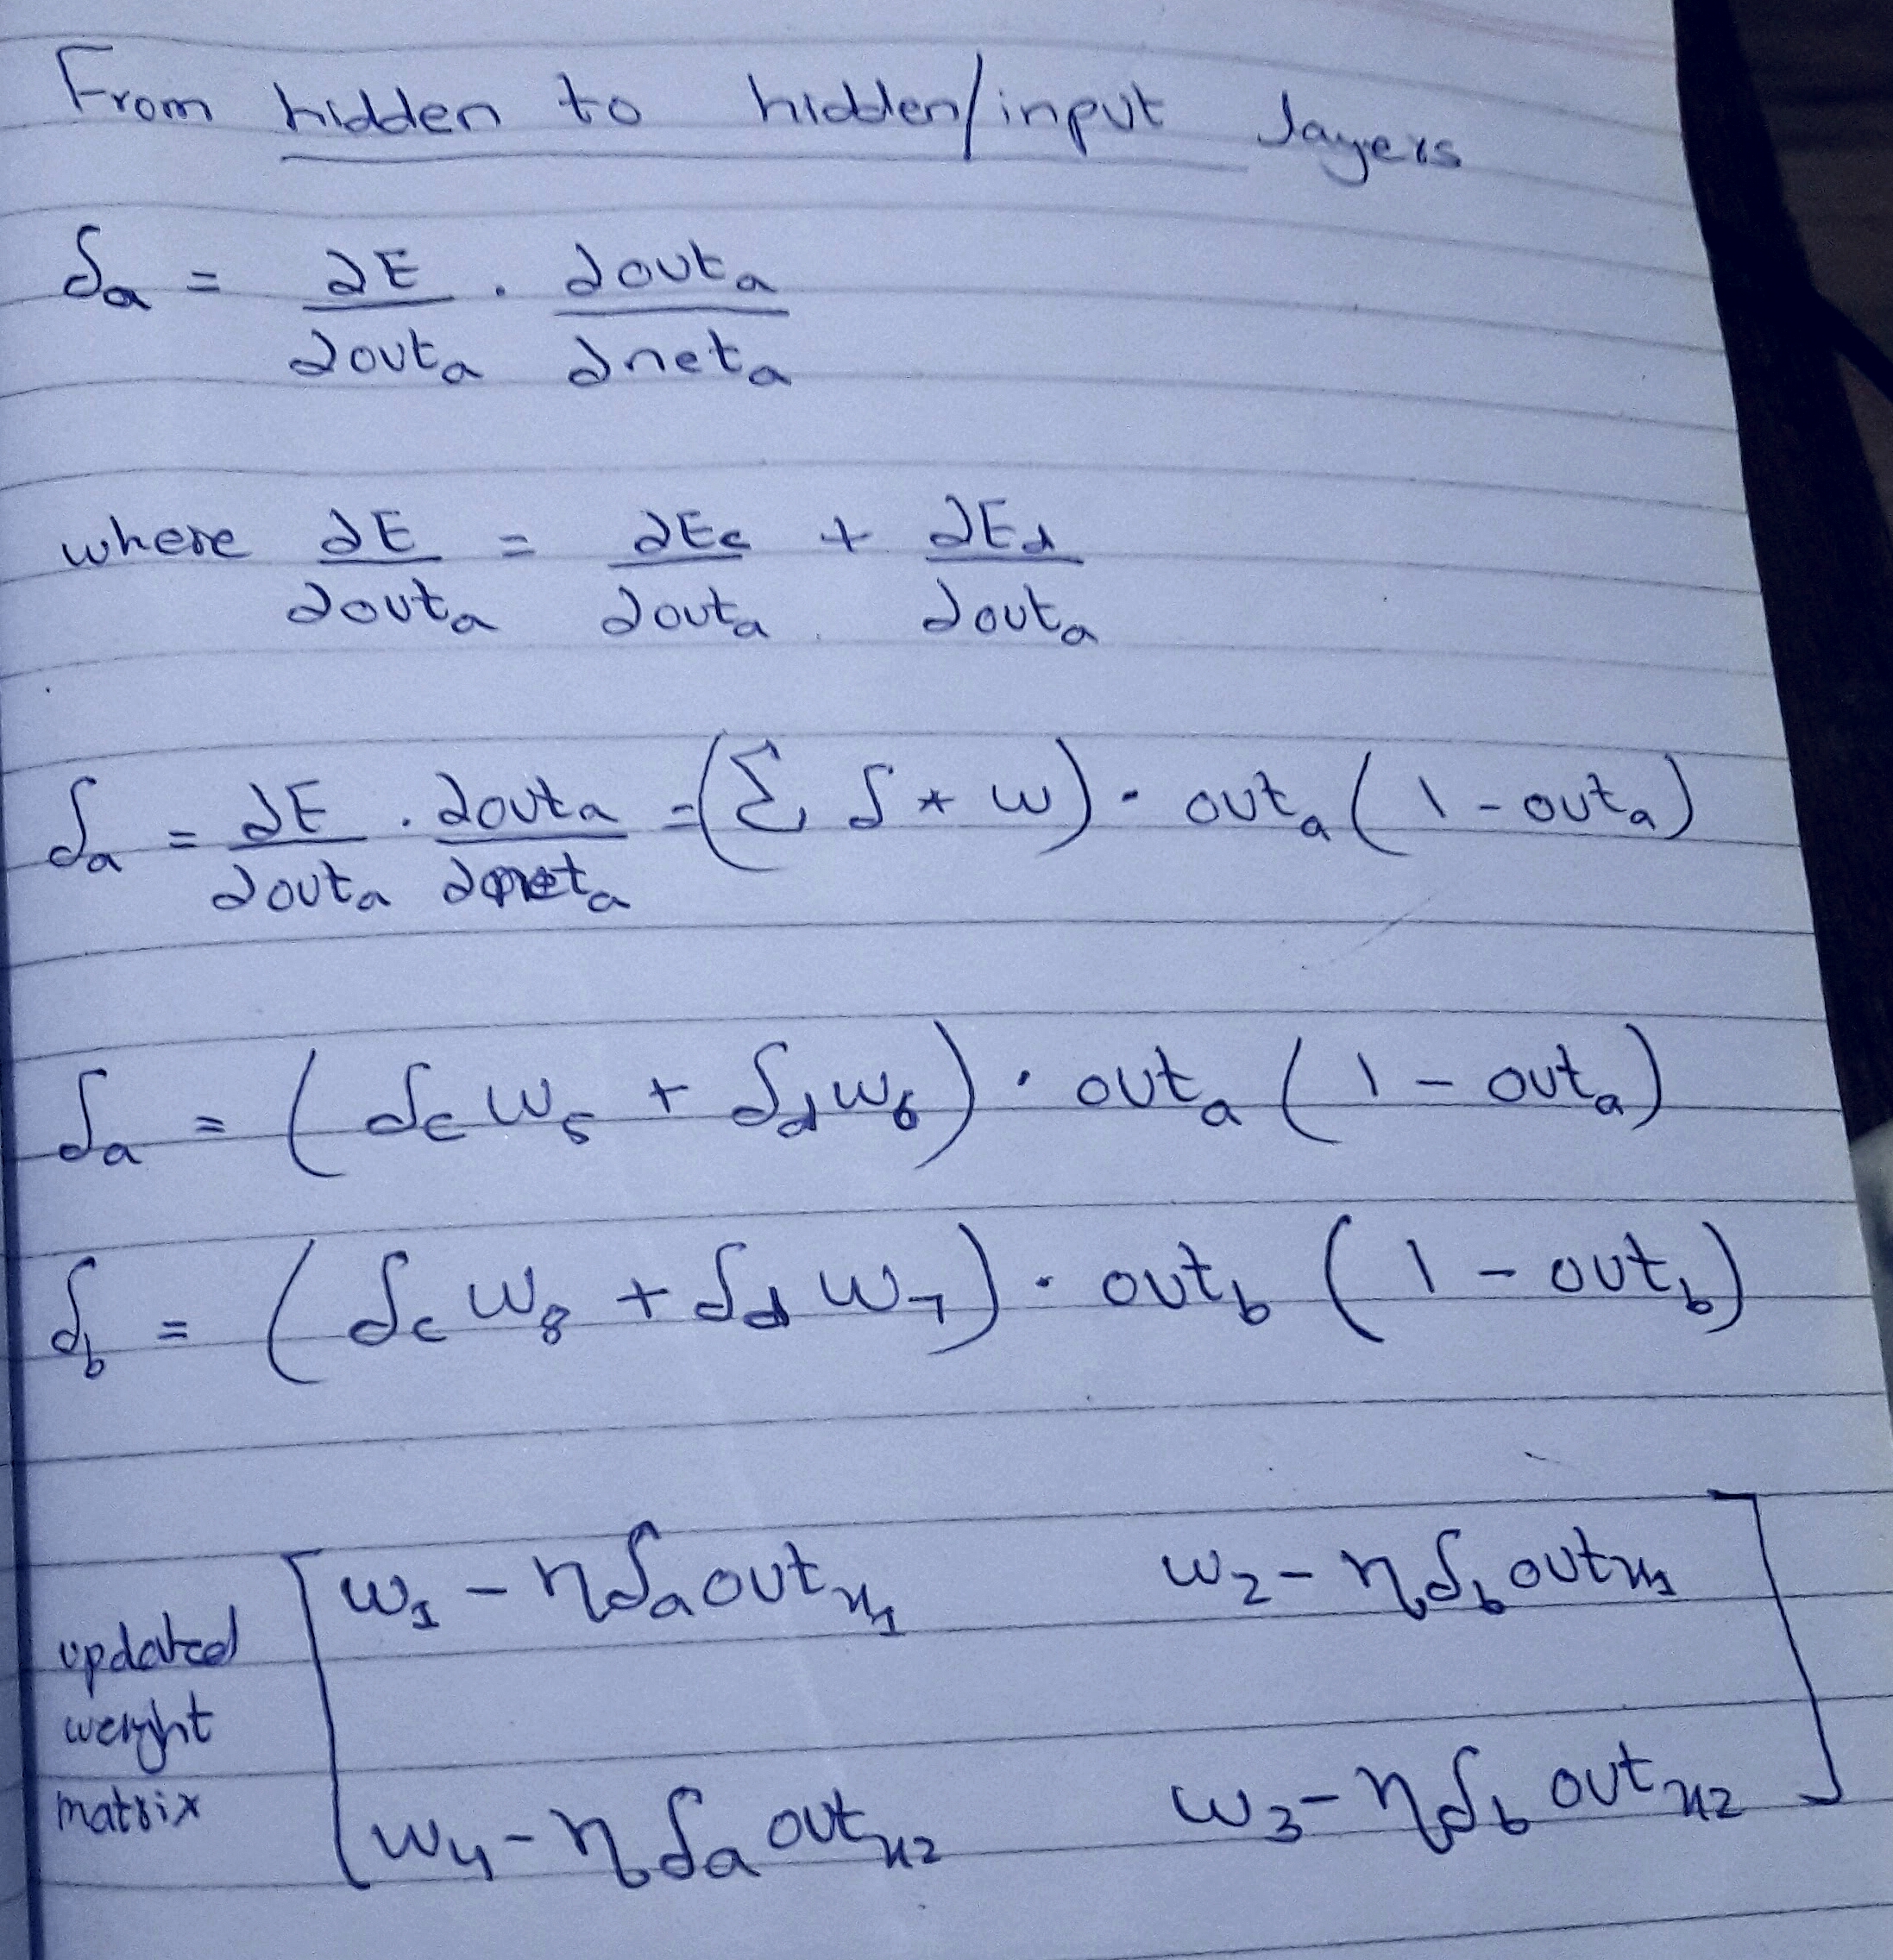 From hidden to hidden/input layers
δa = ∂E/∂outa . ∂outa/∂neta
where ∂E/∂outa = ∂Ec/∂outa + ∂Ed/∂outa
δa = ∂E/∂outa . ∂outa/∂neta = (Σ δ * w) . outa (1 - outa)
δa = (δc w5 + δd w6) . outa (1 - outa)
δb = (δc w8 + δd w7) . outb (1 - outb)
updated weight matrix
[w1 - ηδa outx1 w2 - ηδb outx1
w4 - ηδa outx2 w3 - ηδb outx2]